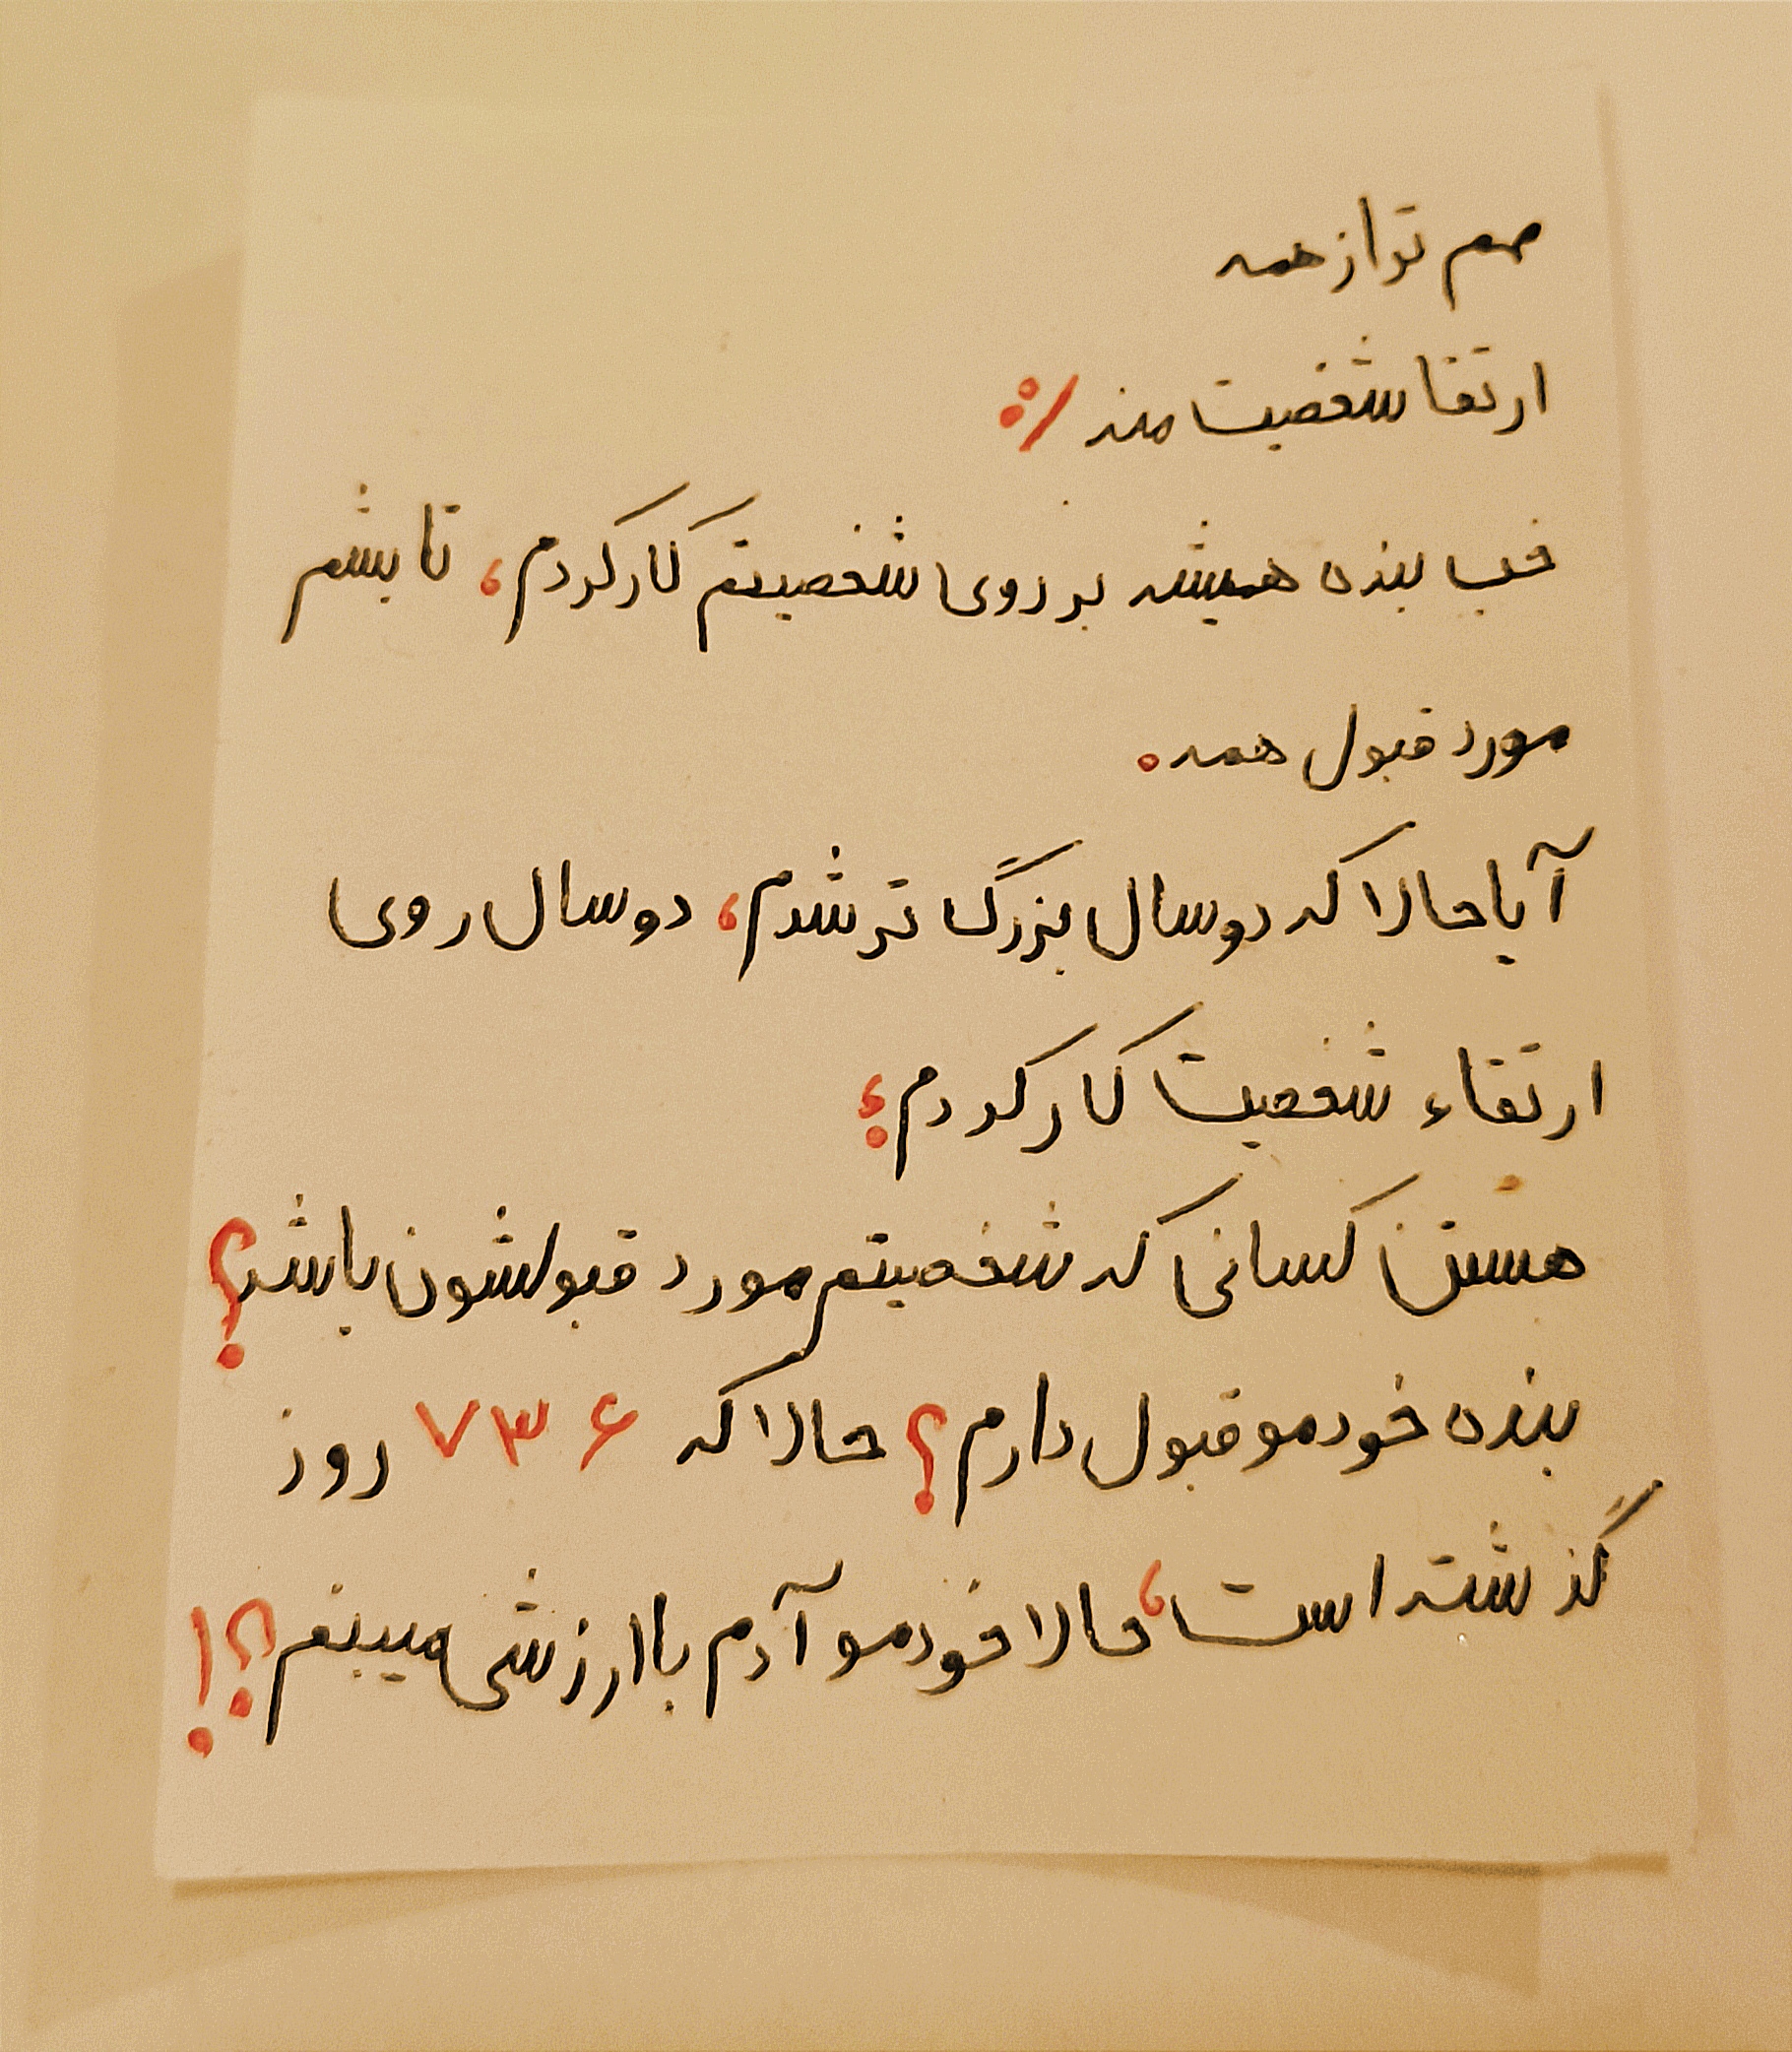 مهم تر از همه
ارتقا شخصیت منه /:
خب بنده همیشه بر روی شخصیتم کار کردم، تا بشم
مورد قبول همه.
آیا حالا که دو سال بزرگ تر شدم، دو سال روی
ارتقاء شخصیت کار کردم؛
هستن کسانی که شخصیتم مورد قبولشون باشد؟
بنده خودمو قبول دارم؟ حالا که ۷۳۶ روز
گذشته است، حالا خودمو آدم باارزشی میبینم؟!